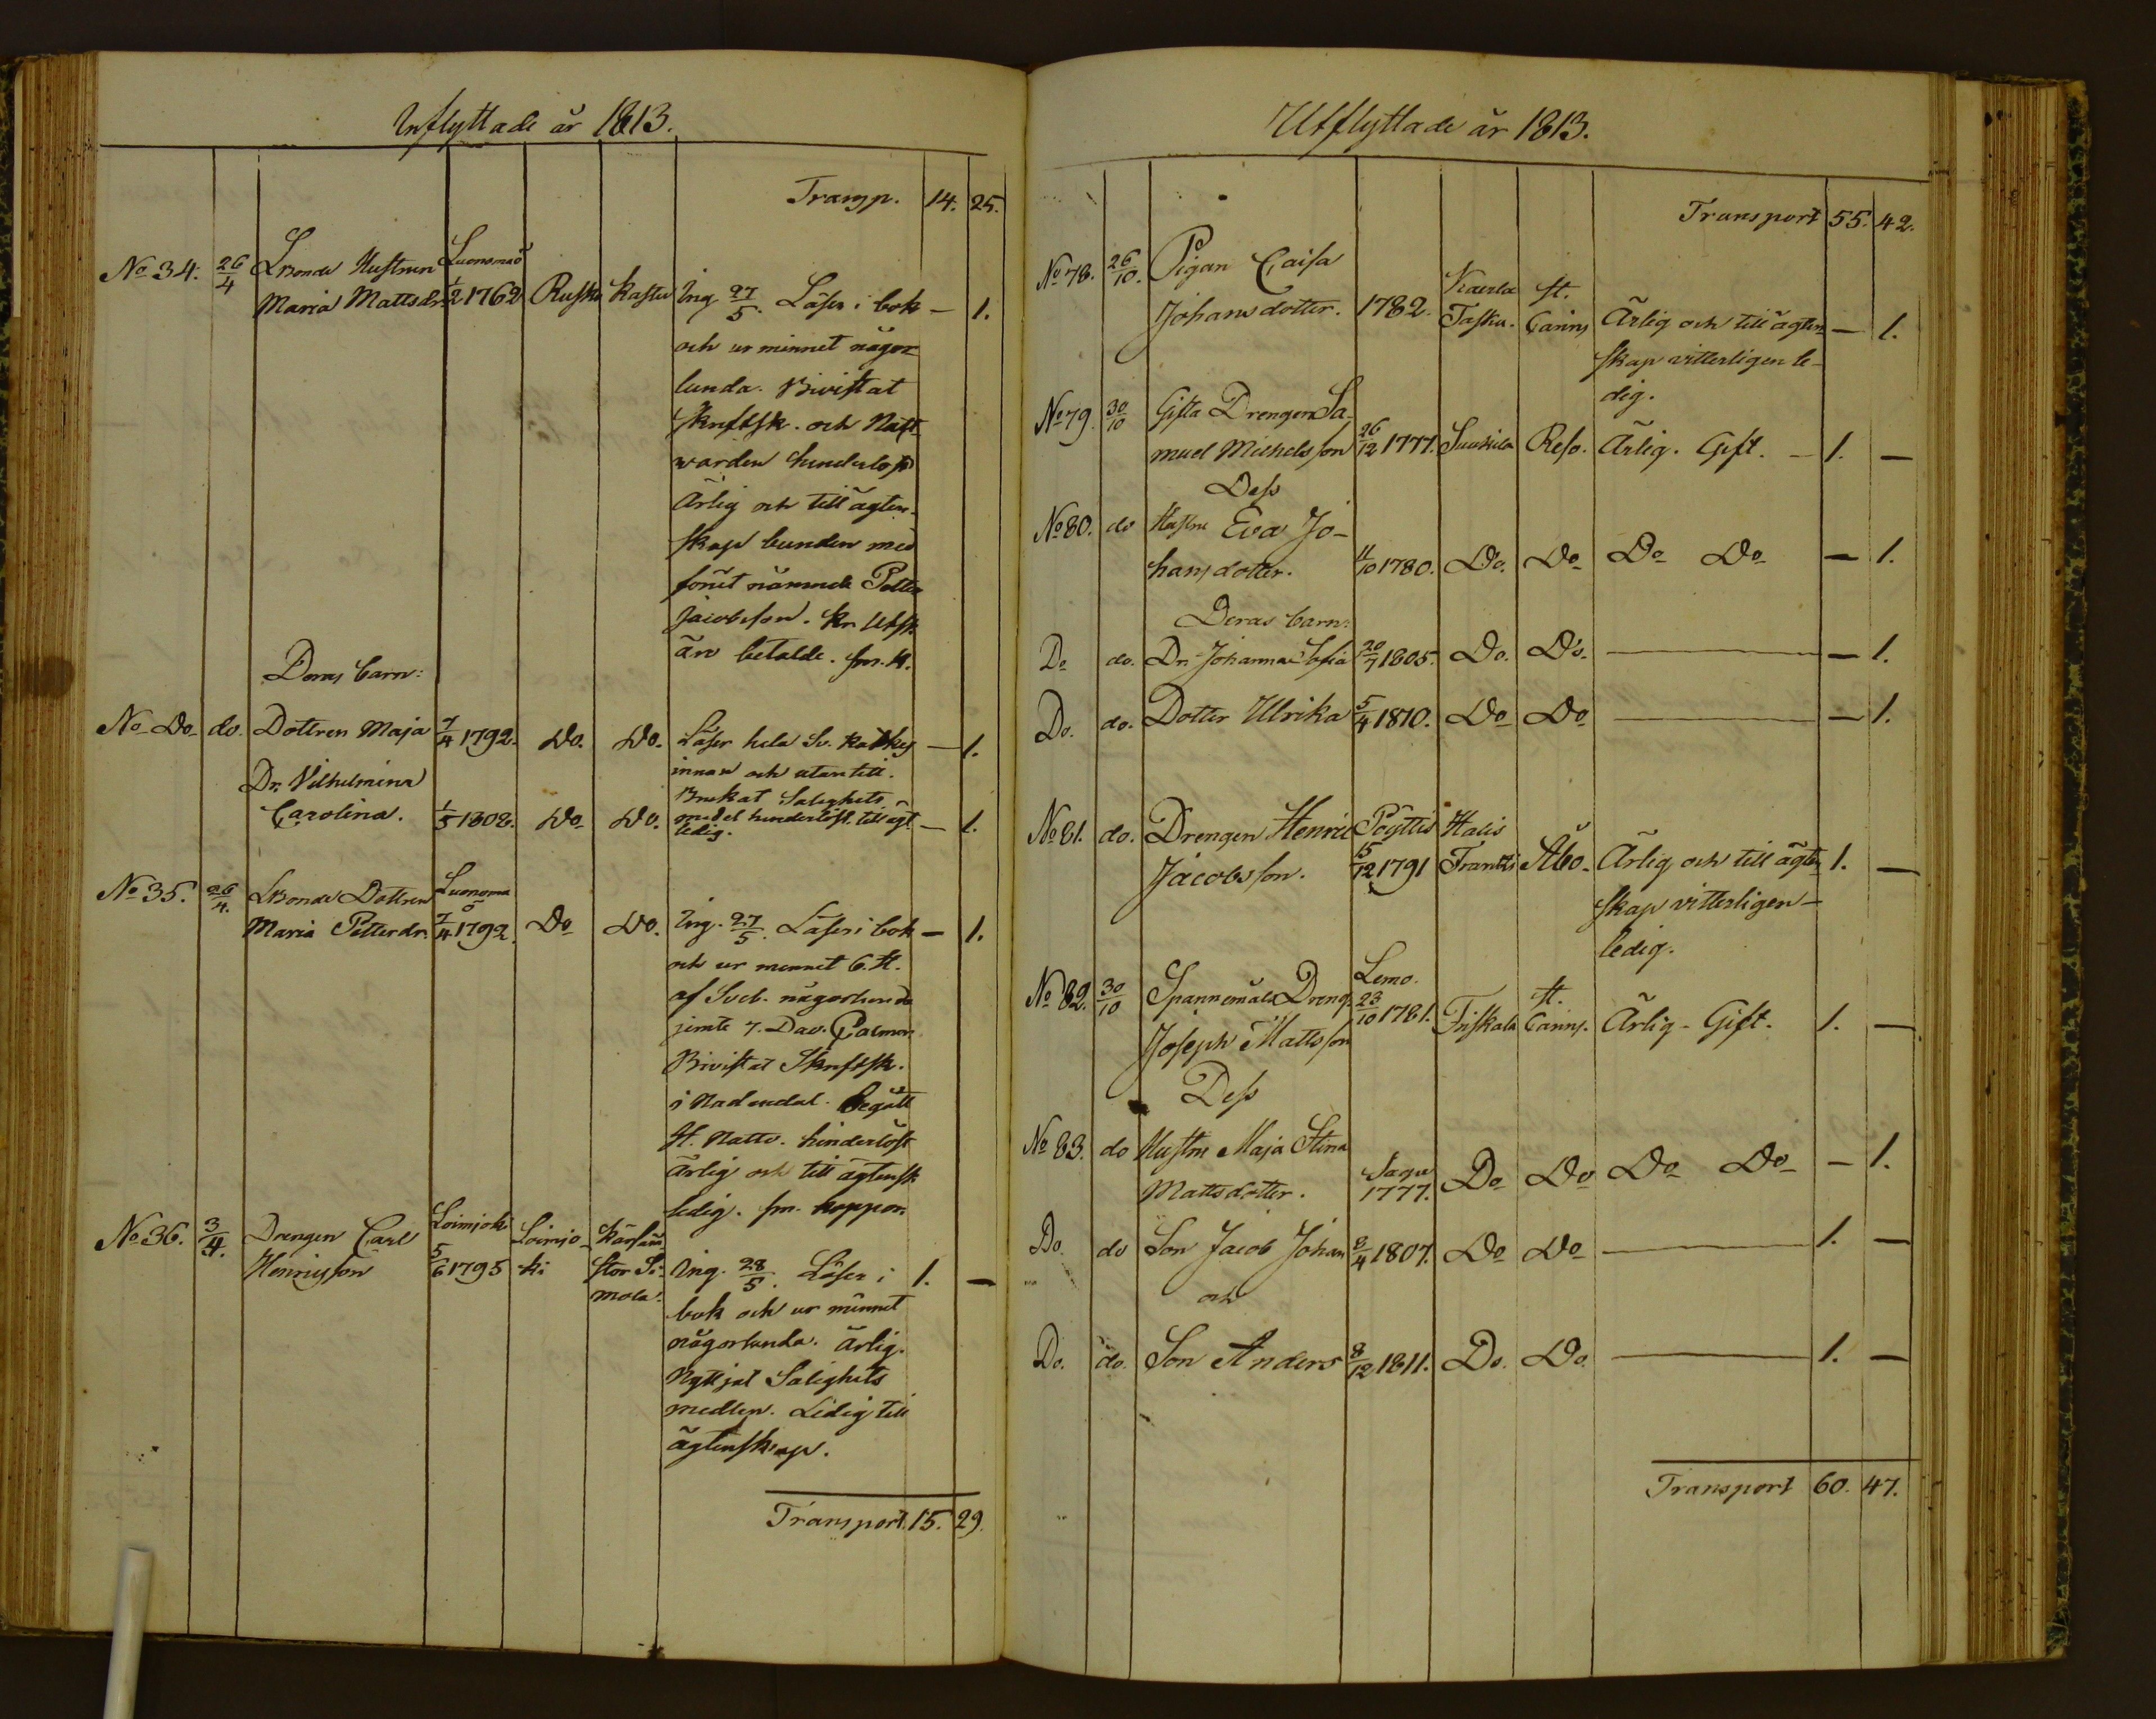 Inflyttade år 1813.
Transp. 14. 25.
No 34. 26/4 LBonde Hustrun Luonomaö
Maria Mattsdr. 1/2 1762 Rusko Kastu Ing 27/5. Läser i bok — 1.
och ur minnet någor
lunda. Bivistat
Skriftsk. och Natt-
varden hinderlöst
Ärlig och till ägten-
skap bunden med
förut nämnde Petter
Jacobsson. Kr. Utsk.
äro betalde.
Deras barn:
No Do do. Dottren Maja 7/4 1792. Do. Do. Läser hela Sv. — 1.
innan och utan till.
Dr. Vilhelmina
Brukat Salighets
Carolina. 1/5 1802. Do Do. medel hinderlöst. till ägt. — 1.
ledig.
No 35. 26/4. LBonde Dottren Luonoma
ö
Maria Petterdr. 7/4 1792. Do Do. Ing. 27/5. Läser i bok — 1.
och ur minnet 6. H.
af Sveb. någorlunda
jemte 7. Dav. Psalmer.
Bivistat Skriftsk.
i Nadendal. Begått
H. Nattv. hinderlöst
ärlig och till ägtensk.
ledig.
No 36. 3/4. Drengen Carl Loimjoki Loimjo- Kärsämä
Henricsson 5/6 1795 ki Stor Si- Ing. 28/5. Läser i 1. —
mola.
bok och ur minnet
någorlunda. ärlig.
Nyttjat Salighets
medlen. Ledig till
ägtenskap.
Transport. 15. 29.
Utflyttade år 1813.
Transport 55. 42.
No 78. 26/10. Pigan Caisa
Johansdotter. 1782. Kaerla Tasku. St. Carins Ärlig och till ägten — 1.
skap vitterligen le-
dig.
No 79. 30/10 Gifta Drengen Sa-
muel Michelsson 26/12 1777. Suukula Reso. Ärlig. Gift. — 1. —
Dess
No 80. do Hustru Eva Jo-
hansdotter. 11/10 1780. Do. Do Do Do — 1.
Deras barn:
Do do. Dr. Johanna Sofia 20/7 1805. Do. Do. — — 1.
Do. do. Dotter Ulrika 5/4 1810. Do Do — — 1.
No 81. do. Drengen Henric Pöyttis Halis
Jacobsson. 15/12 1791 Frantsi Åbo. Ärlig och till ägten 1. —
skap vitterligen —
ledig.
No 82. 30/10 Spannemåls Dreng. Lemo.
Joseph Mattsson 23/10 1781. Friskala St. Carins. Ärlig - Gift. 1. —
Dess
No 83. do Hustru Maja Stina
Mattsdotter. Sagu 1777. Do Do Do Do — 1.
Do. do Son Jacob Johan 8/4 1807. Do Do — 1. —
och
Do. do. Son Anders 8/12 1811. Do. Do. — 1. —
Transport 60. 47.